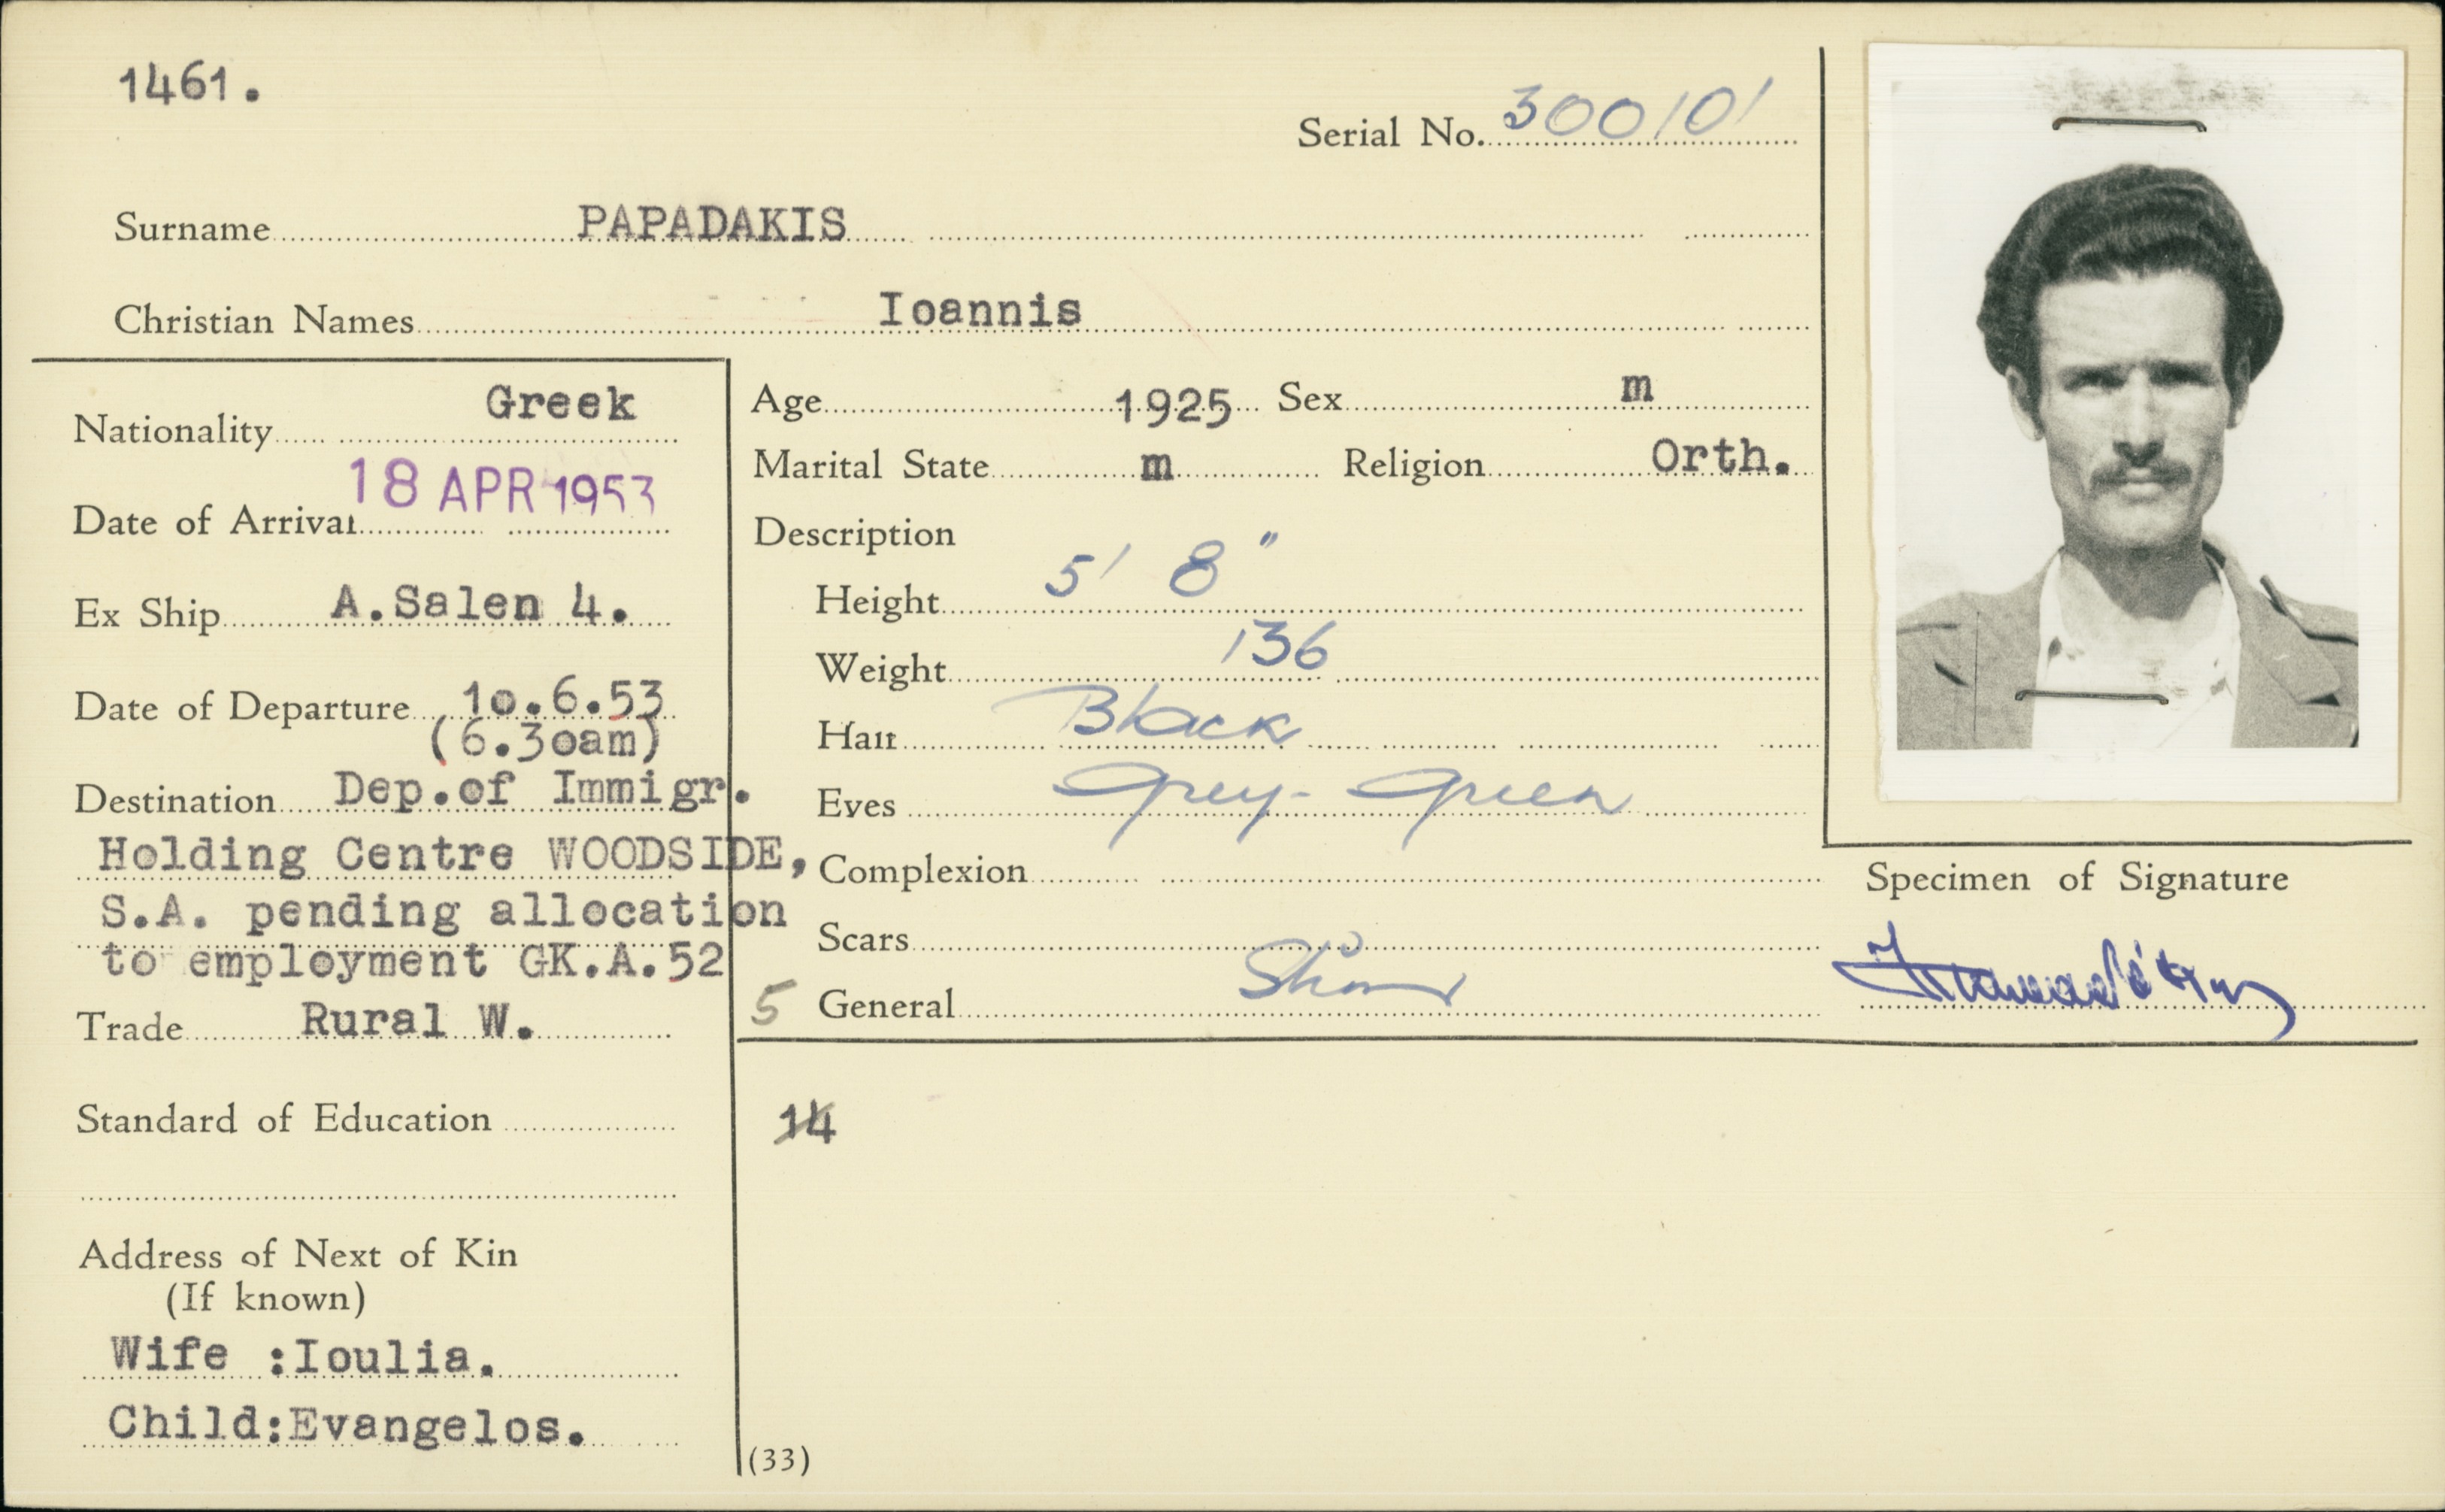 1461.
Serial No. 300101
Surname PAPADAKIS
Christian Names Ioannis
Nationality Greek
Date of Arrival 18 APR 1953
Ex Ship A.Salen 4.
Date of Departure 10.6.53
(6.30am)
Destination Dep.of Immigr.
Holding Centre WOODSIDE,
S.A. pending allocation
to employment GK.A.52
Trade Rural W.
Standard of Education
Address of Next of Kin
(If known)
Wife :Ioulia.
Child:Evangelos.
Age 1925 Sex m
Marital State m Religion Orth.
Description
Height 5' 8"
Weight 136
Hair Black
Eyes Grey-Green
Complexion
Scars
5 General
14
(33)
Specimen of Signature